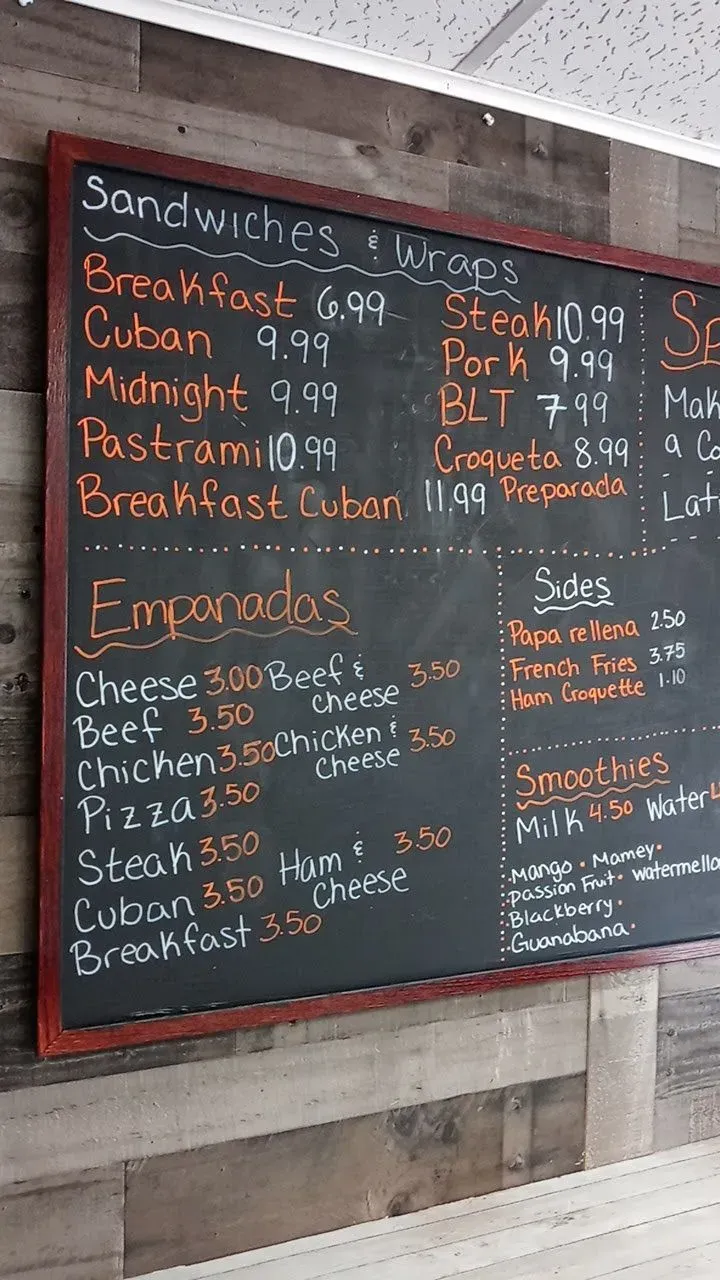 Sandwiches & Wraps
Breakfast 6.99
Cuban 9.99
Midnight 9.99
Pastrami 10.99
Breakfast Cuban 11.99
Steak 10.99
Pork 9.99
BLT 7.99
Croqueta 8.99
Preparada
Empanadas
Cheese 3.00
Beef 3.50
Chicken 3.50
Pizza 3.50
Steak 3.50
Cuban 3.50
Breakfast 3.50
Beef & 3.50
Cheese
Chicken & 3.50
Cheese
Ham & 3.50
Cheese
Mak
a Co
Lat
Sides
Papa rellena 2.50
French Fries 3.75
Ham Croquette 1.10
Smoothies
Milk 4.50 Water
Mango • Mamey •
passion Fruit • watermelo
Blackberry •
Guanabana •